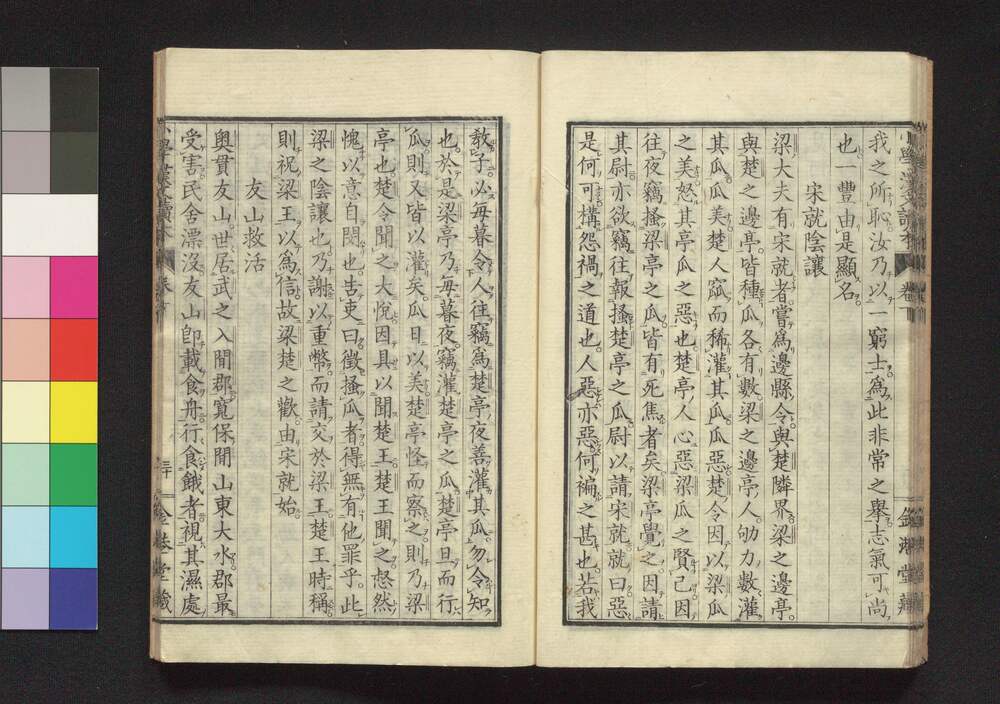 我之所恥汝乃以一窮士爲此非常之舉志氣可尚
也豐由是顯名
宋就陰讓
梁大夫有宋就者嘗爲邊縣令與楚隣界梁之邊亭
與楚之邊亭皆種瓜各有數梁之邊亭人劬力數灌
其瓜瓜美楚人窳而稀灌其瓜瓜惡楚令因以梁瓜
之美怒其亭瓜之惡也楚亭人心惡梁瓜之賢己因
往夜竊搔梁亭之瓜皆有死焦者矣梁亭覺之因請
其尉亦欲竊往報搔楚亭之瓜尉以請宋就就曰惡
是何可構怨禍之道也人惡亦惡何褊之甚也若我
教子必每暮令人往竊爲楚亭夜善灌其瓜勿令知
也於是梁亭乃每暮夜竊灌楚亭之瓜楚亭旦而行
瓜則又皆以灌矣瓜日以美楚亭怪而察之則乃梁
亭也楚令聞之大悅因具以聞楚王楚王聞之惄然
愧以意自閔也告吏曰徵搔瓜者得無有他罪乎此
梁之陰讓也乃謝以重幣而請交於梁王楚王時稱
則祝梁王以爲信故梁楚之歡由宋就始
友山救活
奧貫友山世居武之入間郡寬保間山東大水郡最
受害民舍漂沒友山卽載食舟行食餓者視其濕處